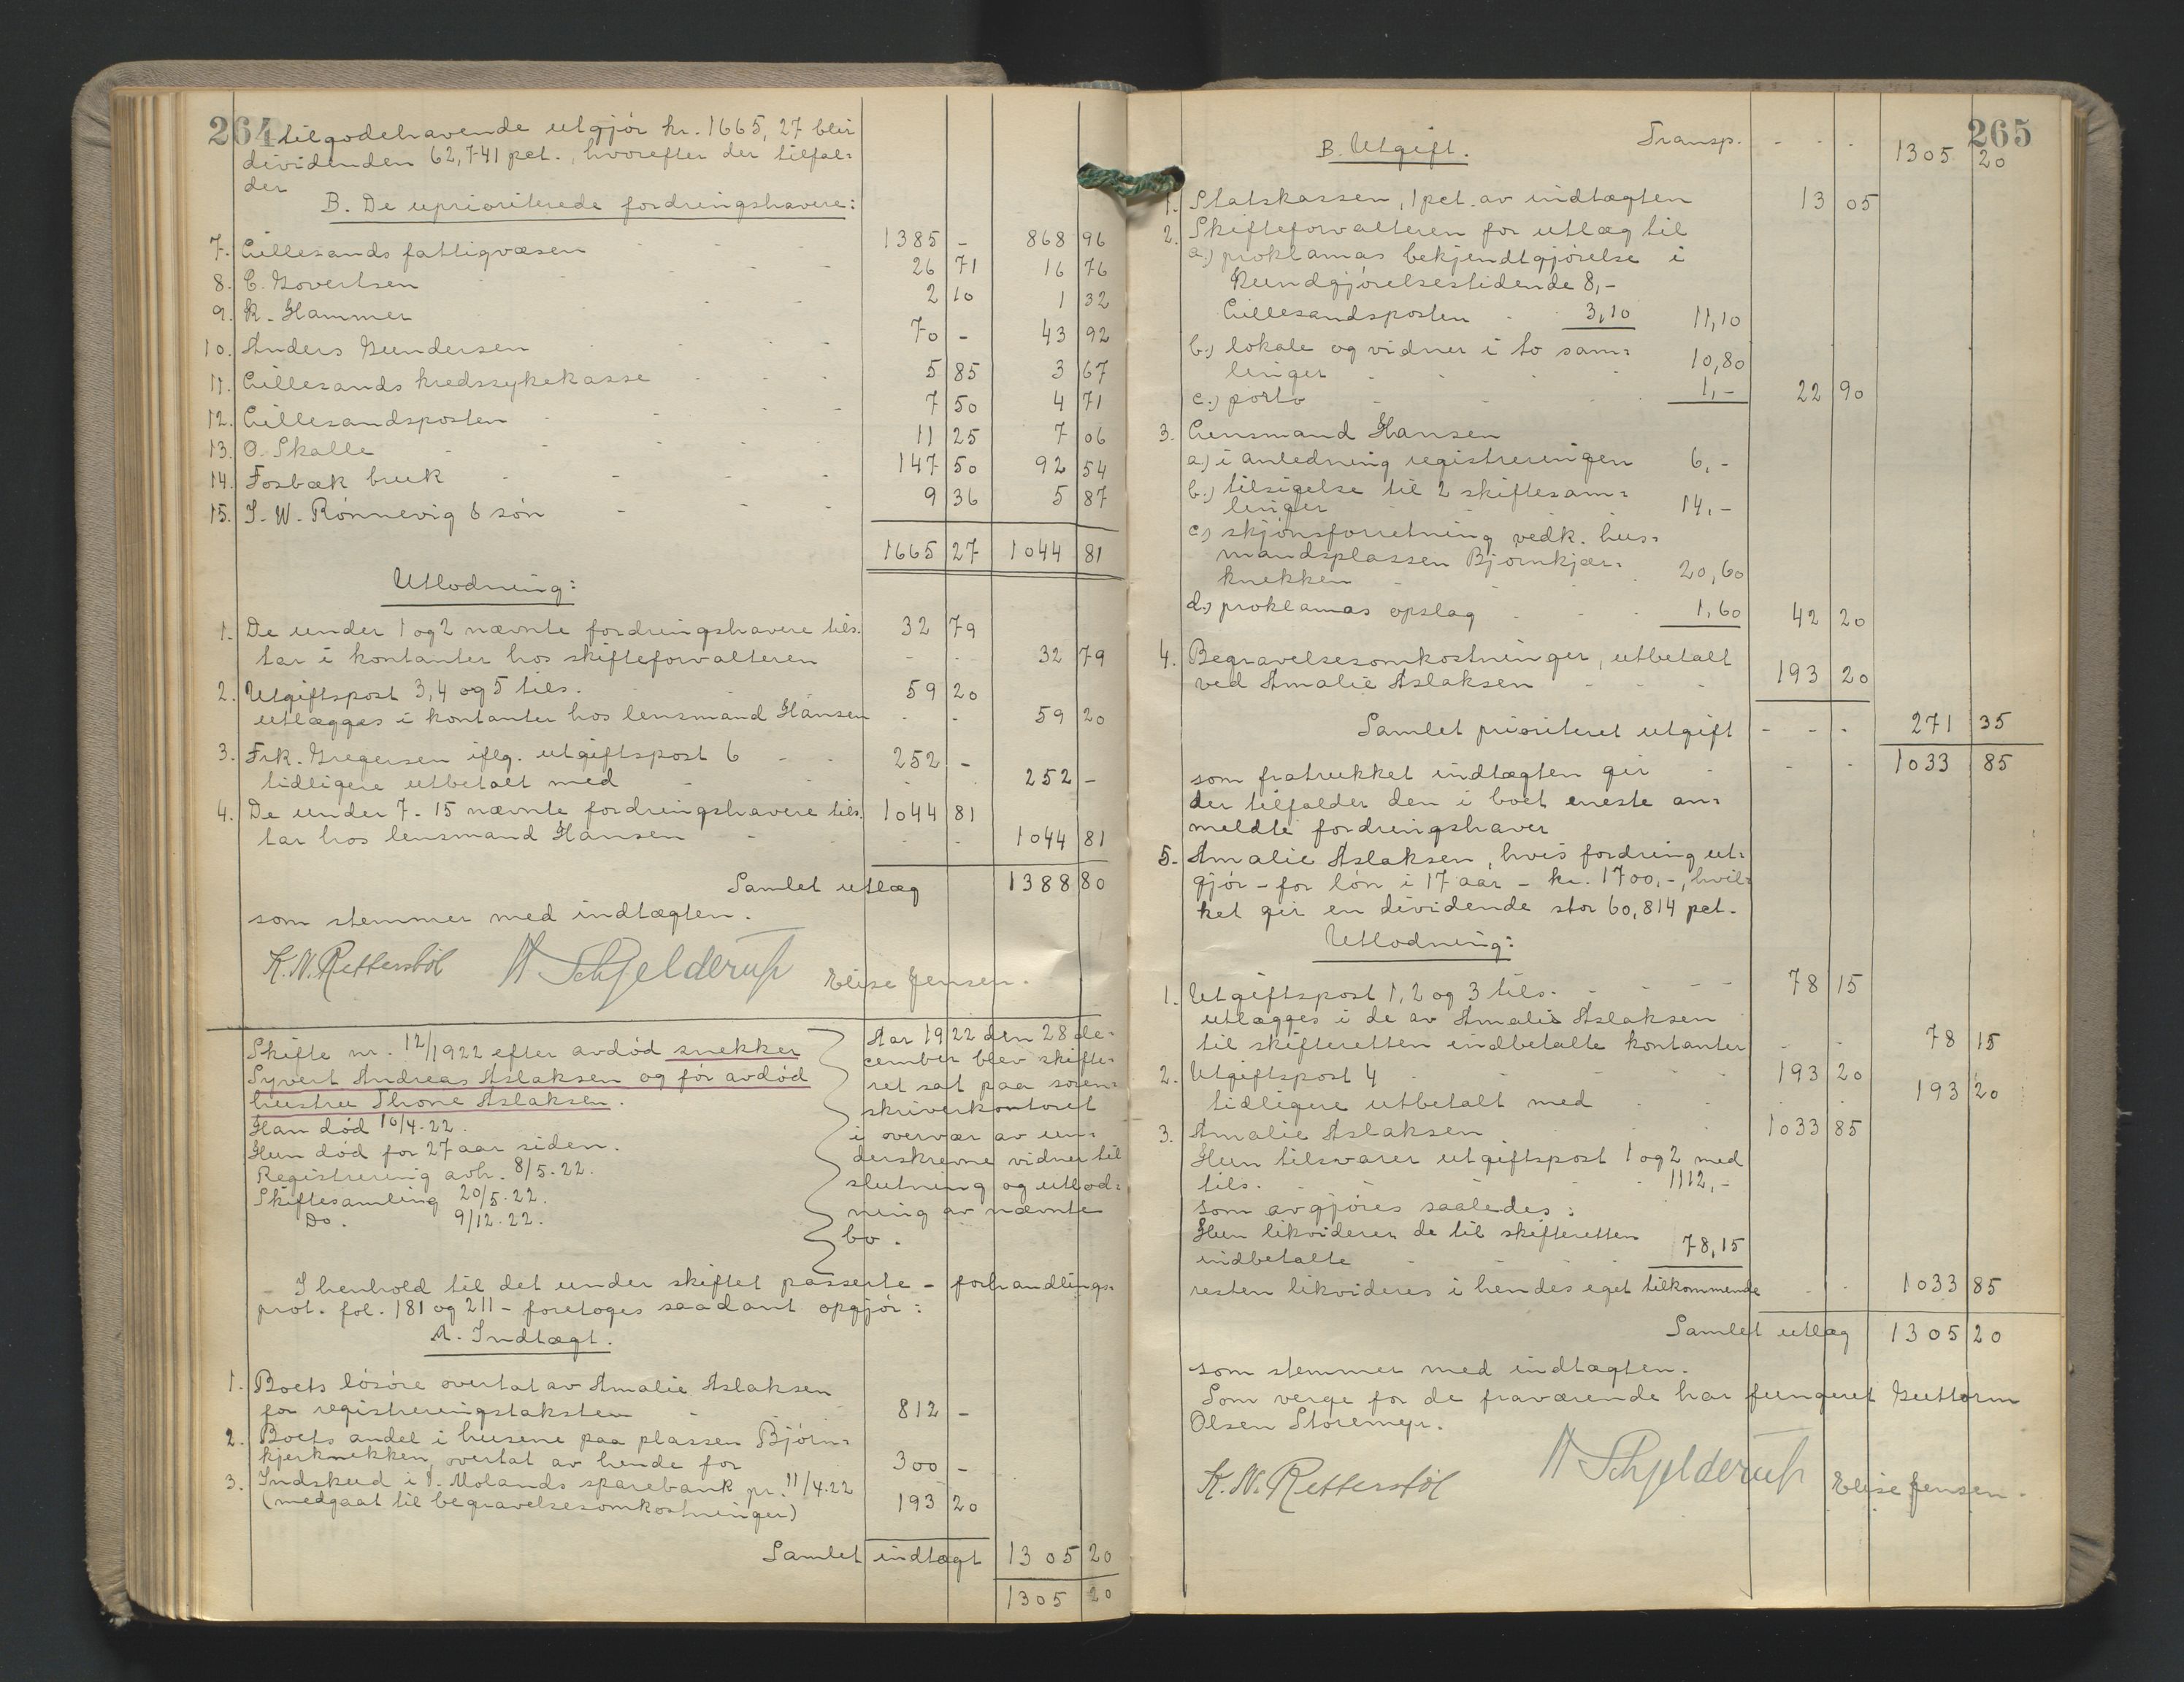 264
tilgodehavende utgjör kr. 1665,27 blir
dividenden 62,741 pct., hvorefter der tilfal-
der
B. De uprioriterede fordringshavere:
7. Lillesands fattigvæsen 1385 - 868 96
8. C. Govertsen 26 71 16 76
9. K. Hammer 2 10 1 32
10. Anders Gundersen 70 - 43 92
11. Lillesands kredssykekasse 5 85 3 67
12. Lillesandsposten 7 50 4 71
13. O. Skalle 11 25 7 06
14. Fosbæk bruk 147 50 92 54
15. J. W. Rönnevig & sön 9 36 5 87
1665 27 1044 81
Utlodning:
1. De under 1 og 2 nævnte fordringshavere tils. 32 79
tar i kontanter hos skifteforvalteren - - 32 79
2. Utgiftspost 3, 4 og 5 tils. 59 20
utlægges i kontanter hos lensmand Hansen - - 59 20
3. Frk. Gregersen iflg. utgiftspost 6 252 -
tidligere utbetalt med 252 -
4. De under 7 - 15 nævnte fordringshavere tils. 1044 81
tar hos lensmand Hansen - - 1044 81
Samlet utlæg 1388 80
som stemmer med indtægten.
K. N. Retterstöl A Schjelderup Elise Jensen.
Skifte nr. 12/1922 efter avdöd snekker
Syvert Andreas Aslaksen og för avdöd
hustru Thone Aslaksen.
Han död 10/4.22.
Hun död for 27 aar siden.
Registrering avh. 8/5.22.
Skiftesamling 20/5.22.
Do. 9/12.22.
Aar 1922 den 28 de-
cember blev skifte-
ret sat paa soren-
skriverkontoret
i overvær av un-
derskrevne vidner til
slutning og utlod-
ning av nævnte
bo.
I henhold til det under skiftet passerte - forhandlings-
prot. fol. 181 og 211 - foretoges saadant opgjör:
A. Indtægt.
1. Boets lösöre overtat av Amalie Aslaksen
for registreringstaksten 812 -
2. Boets andel i husene paa plassen Björn-
kjerknekken, overtat av hende for 300 -
3. Indskud i V. Molands sparebank pr. 11/4.22
(medgaat til begravelsesomkostninger) 193 20
Samlet indtægt 1305 20
1305 20
265
B. Utgift. Transp. - - - 1305 20
1. Statskassen, 1 pct. av indtægten 13 05
2. Skifteforvalteren for utlæg til
a.) proklamas bekjendtgjörelse i
Kundgjörelsestidende 8,-
Lillesandsposten 3,10 11,10
b.) lokale og vidner i to sam-
linger 10,80
c.) porto 1,- 22 90
3. Lensmand Hansen
a.) i anledning registreringen 6,-
b.) tilsigelse til 2 skiftesam-
linger 14,-
c.) skjönsforretning vedk. hus-
mandsplassen Björnkjær-
knekken 20,60
d.) proklamas opslag 1,60 42 20
4. Begravelsesomkostninger, utbetalt
ved Amalie Aslaksen 193 20
Samlet prioriteret utgift - - - 271 35
som fratrukket indtægten gir - - 1033 85
der tilfalder den i boet eneste an-
meldte fordringshaver
5. Amalie Aslaksen, hvis fordring ut-
gjör - for lön i 17 aar - kr. 1700,-, hvil-
ket gir en dividende stor 60,814 pct.
Utlodning:
1. Utgiftspost 1, 2 og 3 tils. 78 15
utlægges i de av Amalie Aslaksen
til skifteretten indbetalte kontanter - - 78 15
2. Utgiftspost 4 193 20
tidligere utbetalt med 193 20
3. Amalie Aslaksen 1033 85
Hun tilsvarer utgiftspost 1 og 2 med
tils. 1112,-
som avgjöres saaledes:
Hun likviderer de til skifteretten
indbetalte 78,15
resten likvideres i hendes eget tilkommende - - 1033 85
Samlet utlæg 1305 20
som stemmer med indtægten.
Som verge for de fraværende har fungeret Guttorm
Olsen Storemyr.
K. N. Retterstöl A Schjelderup Elise Jensen.